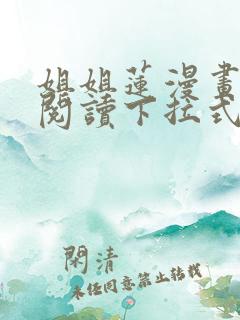 姐姐蓮漫畫
閱讀下拉式
閑清
未经同意禁止转载